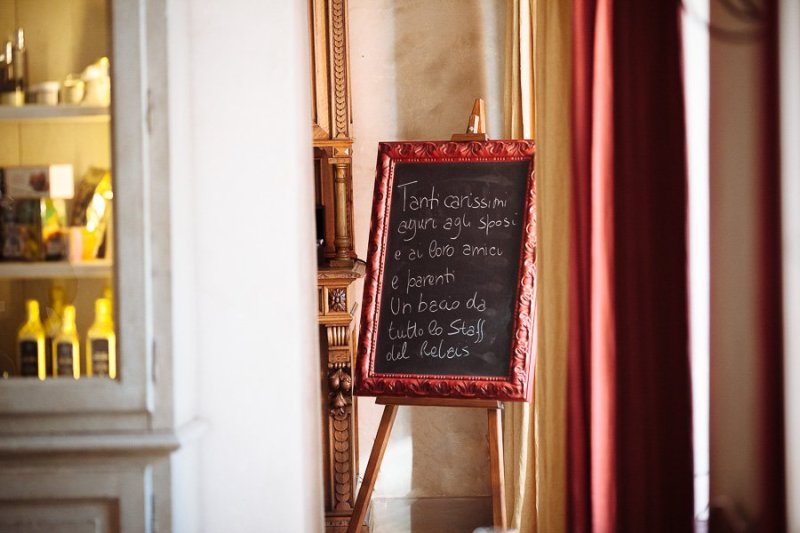 Tanti carissimi
auguri agli sposi
e ai loro amici
e parenti
Un bacio da
tutto lo Staff
del Relais